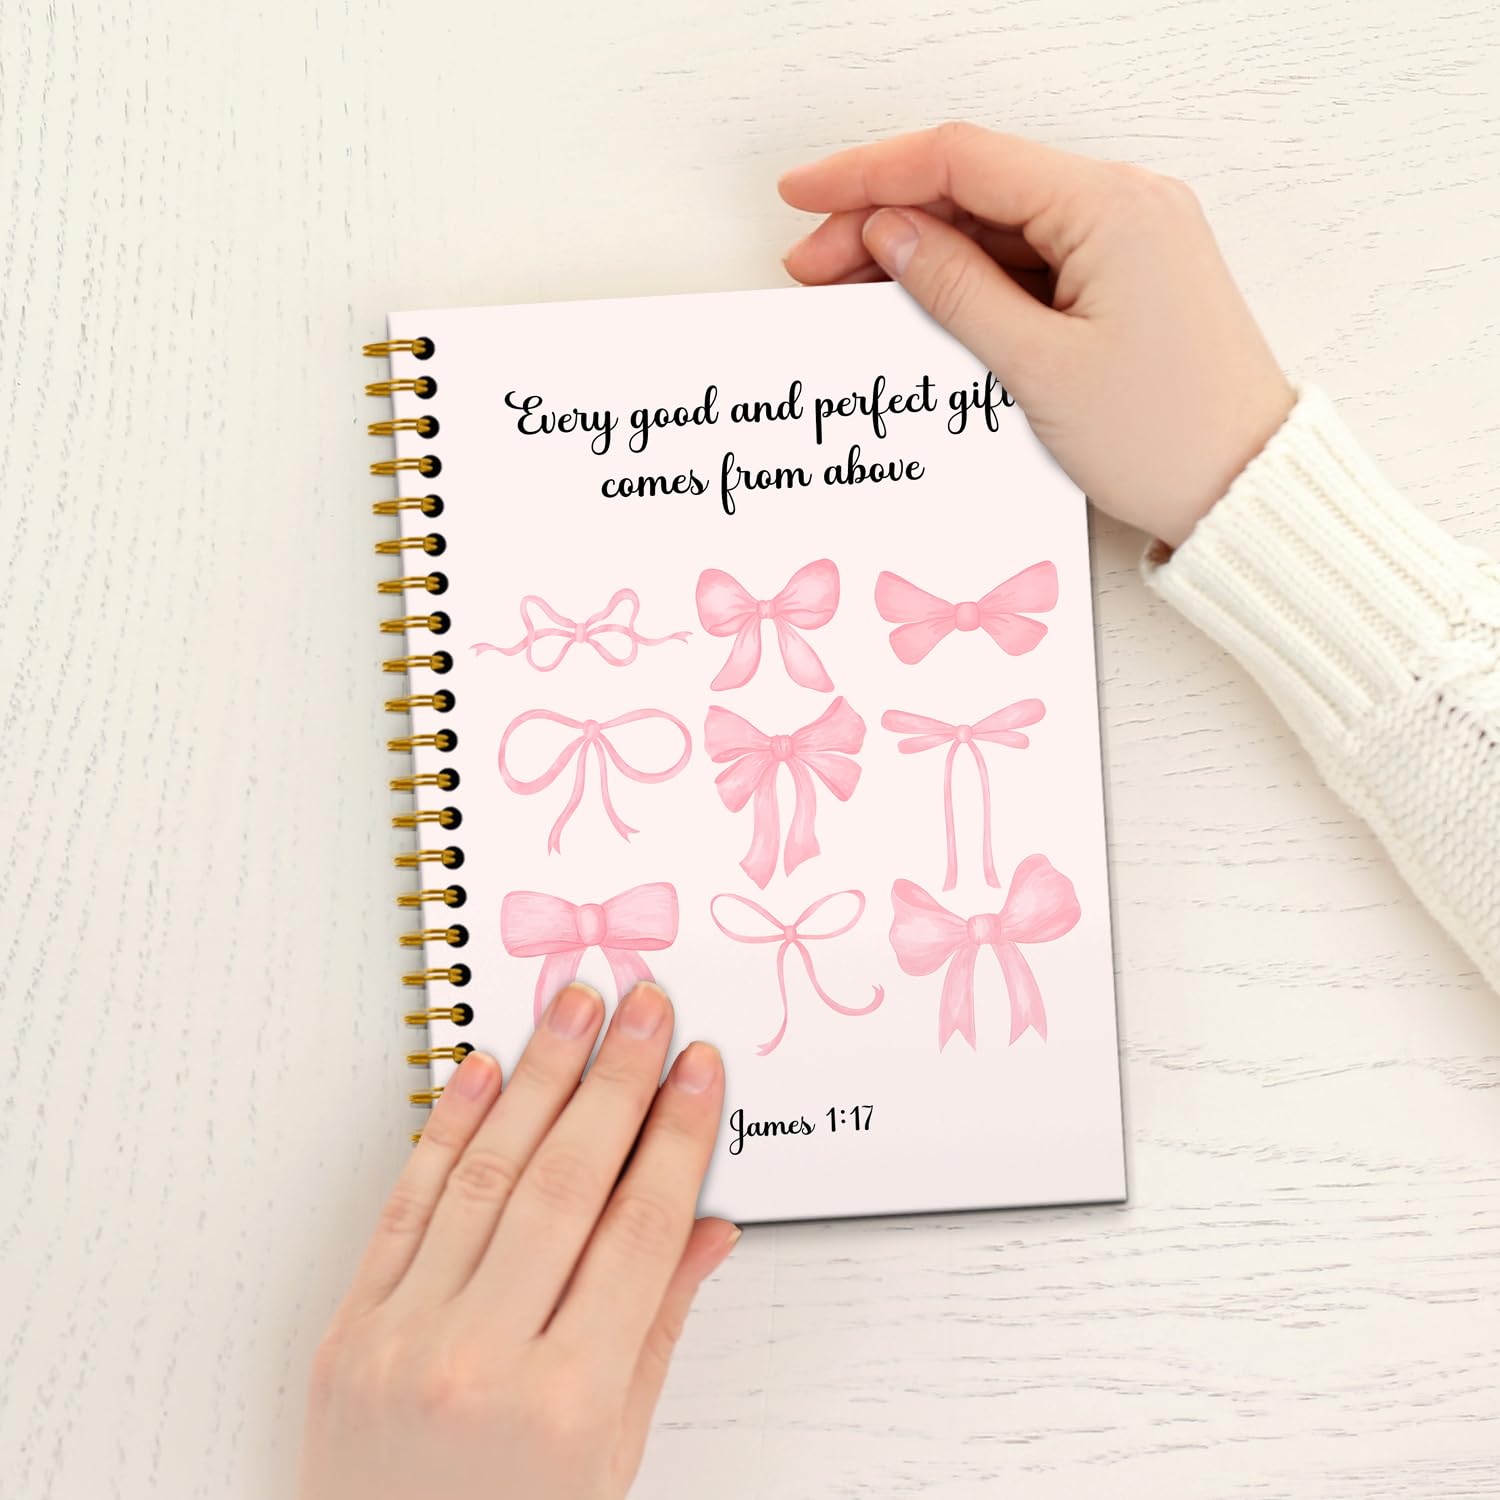 Every good and perfect gift
comes from above
James 1:17